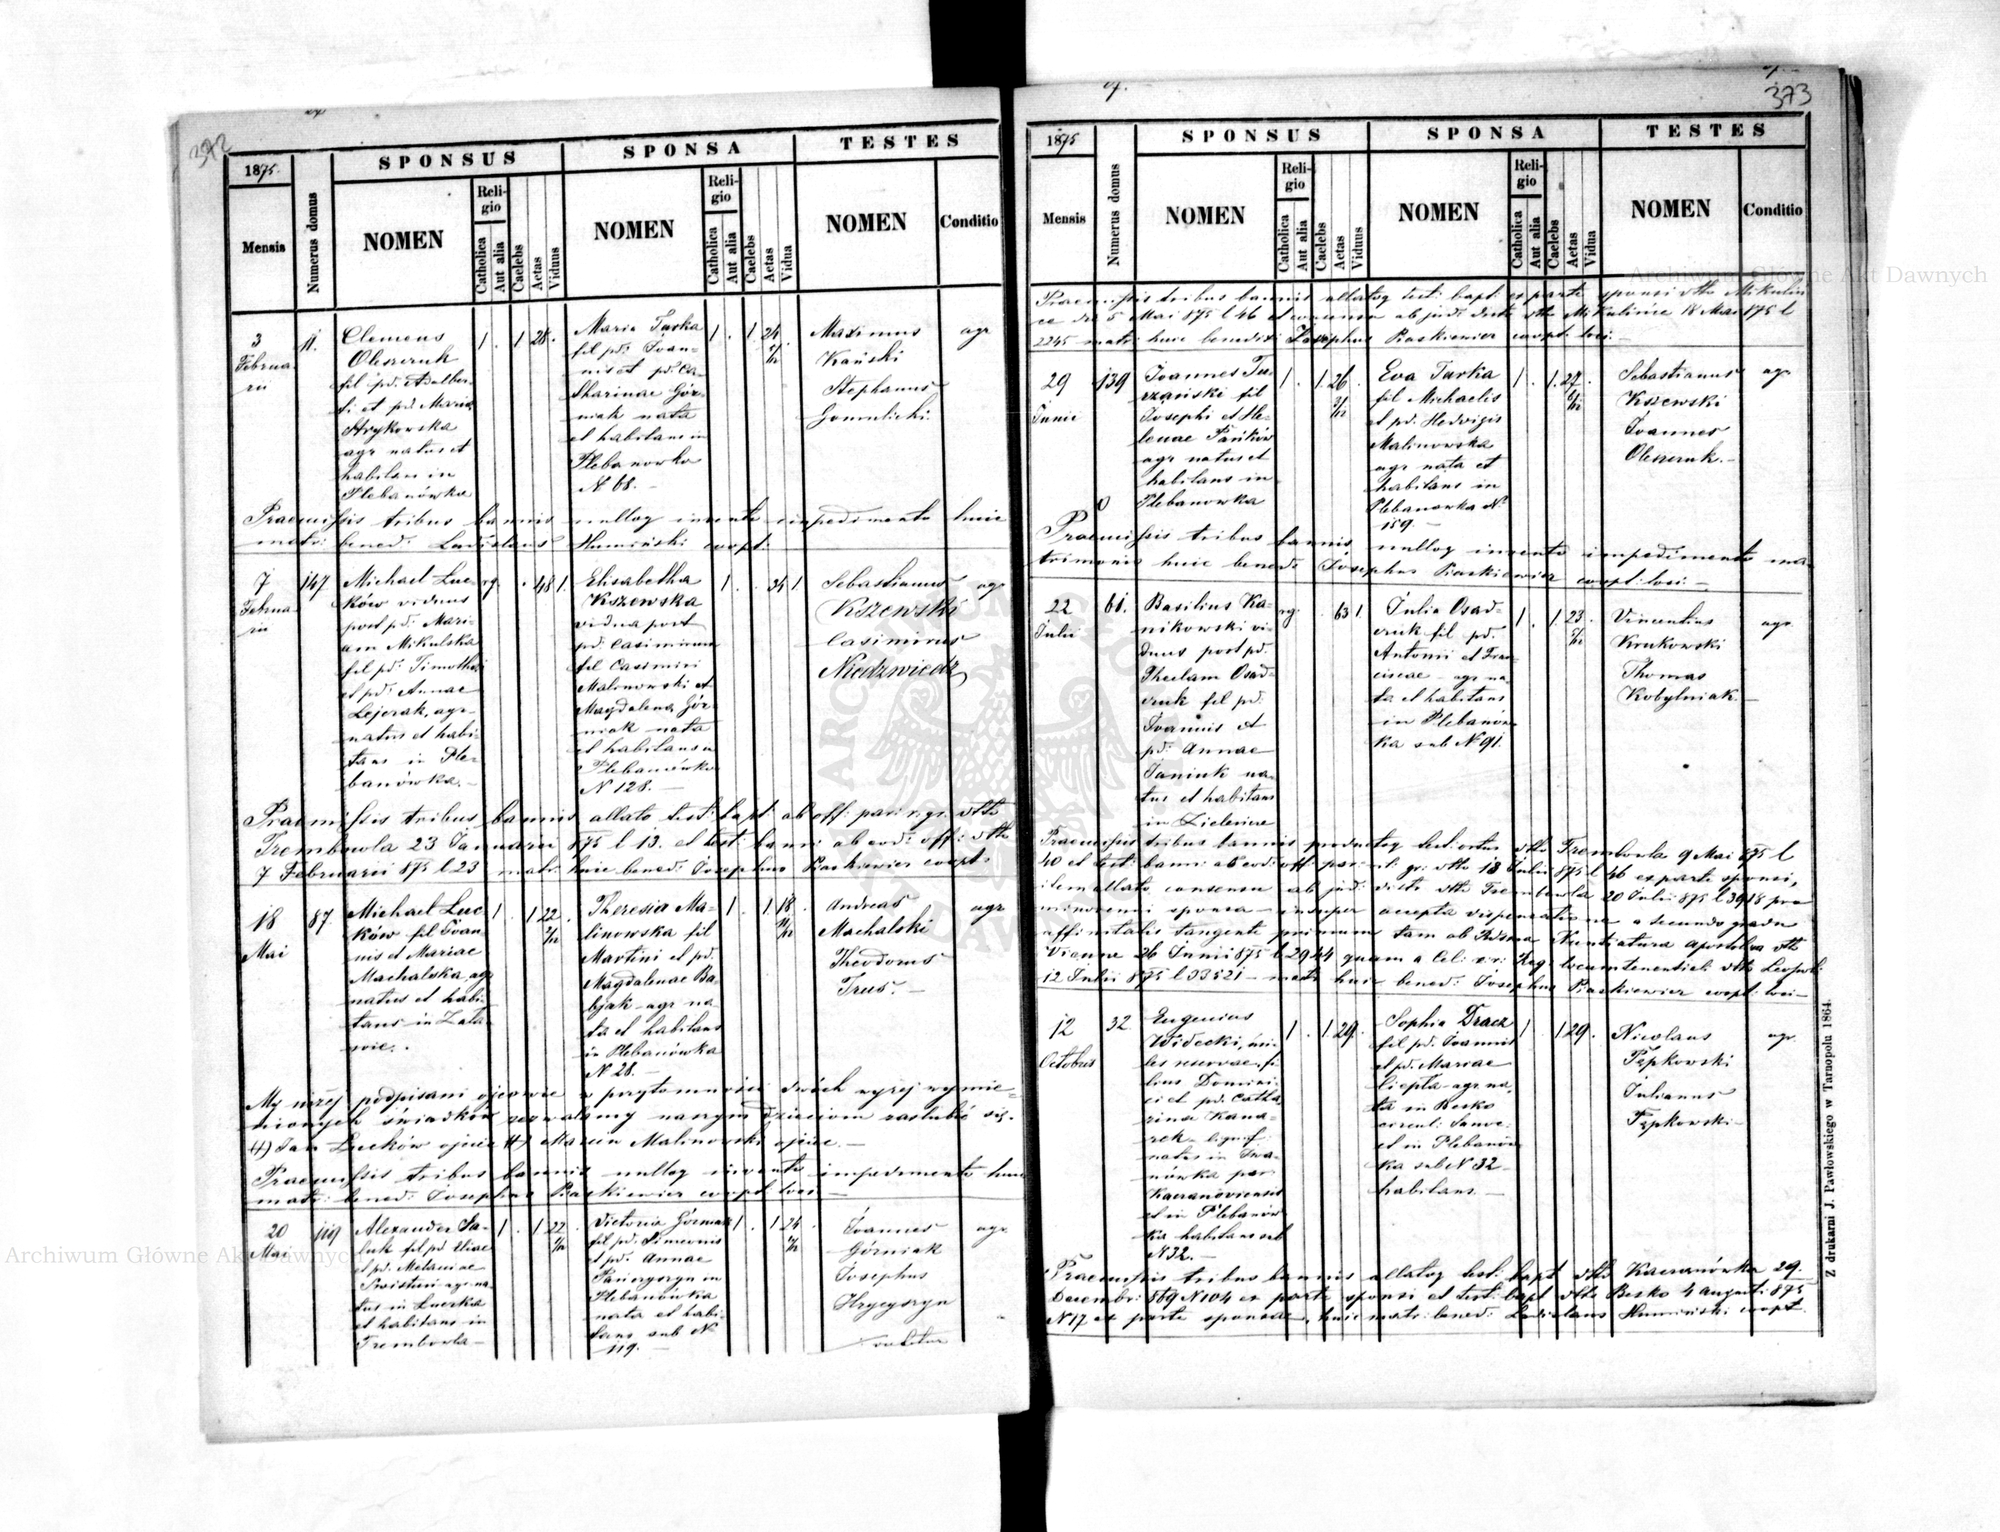 372
1875.
Mensis
Numerus domus
SPONSUS
NOMEN
Religio
Catholica
Aut alia
Caelebs
Aetas
Viduus
SPONSA
NOMEN
Religio
Catholica
Aut alia
Caelebs
Aetas
Vidua
TESTES
NOMEN
Conditio
3
Februa-
rii
11.
Clemens
Oleszczuk
fil pd. Adalber-
ti et pd. Maria
Strykowska
agr natus et
habitans in
Plebanówka
1. 1 28.
Maria Turka
fil pd: Ioan-
nis et pd. Ca-
tharinae Gór-
niak nata
et habitans in
Plebanowka
N 68. —
1. 1 24
Maximus
Kański
Stephanus
agr
Praemissis tribus bannis nulloq invento impedimento huic
matr: bened: Ladislaus Humiński coopt:
7
Februa-
rii
147
Michael Luc-
ków viduus
post pd: Mari-
am Mikulska
fil pd: Timothei
et pd: Annae
Lejczak, agr-
natus et habi-
tans in Ple-
banówka.—
rg. . 48 1.
Elisabetha
Kszewska
vidua post
pd. Casimirum
fil Casimiri
Malinowski et
Magdalena Gór-
niak nata
et habitans in
Plebanówka
N 128. —
1. . 34 1.
Sebastianus
Kszewski
Casimirus
Niedzwiedz
agr
Praemissis tribus bannis allato test: bapt: ab off: par: rgr. dtto
Trembowla 23 Januarii 875 l 13. et test: banni ab eod: off: dtto
7 Februarii 875 l 23 matr: huic bened: Josephus Piaskiewicz coopt:
18
Mai
87.
Michael Luc
ków fil Ioan-
nis et Mariae
Machalska agr
natus et habi-
tans in Zala-
wie..
1. 1 22
Theresia Ma-
linowska fil
Martini et pd.
Magdalenae Ba-
bjak — agr na-
ta et habitans
in Plebanówka
N 28. —
1. 1. 18
Andreas
Machalski
Theodorus
Trus. —
agr
My niżej podpisani ojcowie w przytomności dwóch wyżej wymie-
nionych świadków zezwalamy naszym dzieciom zaslubić się.
+) Jan Lucków ojciec +) Marcin Malinowski ojciec. —
Praemissis tribus bannis nulloq invento impedimento huic
matr: bened: Josephus Piaskiewicz coopt loci —
20
Mai
119
Alexander Sa-
luk fil pd Eliae
et pd. Melaniae
agr na-
tus in Luczka
et habitans in
Trembowla —
1. 1 22
Victoria Górniak
fil pd. Simeonis
et pd: Annae
in
Plebanówka
nata et habi-
tans sub N
119. —
1. 1 24
Ioannes
Górniak
Iosephus
Hrycyszyn
agr
373
1875
Mensis
Numerus domus
SPONSUS
NOMEN
Religio
Catholica
Aut alia
Caelebs
Aetas
Viduus
SPONSA
NOMEN
Religio
Catholica
Aut alia
Caelebs
Aetas
Vidua
TESTES
NOMEN
Conditio
Praemissis tribus bannis allatoq test: bapt: ex parte sponsi dtto Mikulin
ce die 5 Mai 875 l 46 et consensu ab jud: distr dtto Mikulince 18 Mai 875 l
2245 matri huic benedixi Josephus Piaskiewicz coopt: loci —
29
Iunii
139
Ioannes Tu-
rzański fil
Iosephi et He-
lenae Pańków
agr natus et
habitans in
Plebanowka
1. 1. 26
Eva Turka
fil Michaelis
et pd. Hedvigis
Malinowska
agr nata et
habitans in
Plebanowka N.
139. —
1. 1. 27
Sebastianus
Kszewski
Ioannes
Oleszczuk.—
agr
Praemissis tribus bannis, nulloq invento impedimento ma-
trimonio huic bened: Josephus Piaskiewicz coopt: loci —
22
Iulii
61.
Basilius Ka-
nikowski vi-
duus post pd.
Theclam Osad-
czuk fil pd.
Ioannis et
pd: Annae
Janiuk na-
tus et habitans
in Zielenice
rg. . 63 1.
Iulia Osad-
czuk fil pd.
Antonii et Fran-
ciscae — agr na-
ta et habitans
in Plebanów-
ka sub N 91.
1. 1. 23
Vincentius
Krukowski
Thomas
Kobylniak.—
agr
Praemissis tribus bannis productoq test: ortus dtto Trembowla 9 Mai 875 l
40 et test: banni ab eod: off: par: rit: gr: dtto 18 Julii 875 l 46 ex parte sponsi,
item allato consensu ab jud: distr: dtto Trembowla 20 Julii 875 l 3918 pro
minorenni sponsa — insuper accepta dispensatione a secundo gradu
affinitatis tangente primum tam ab Nuntiatura apostolica dtto
Vienne 26 Junii 875 l 2944 quam a Cel: Reg: locumtenentiali dtto Leopoli
12 Julii 875 l 33521 — matr: huic bened: Josephus Piaskiewicz coopt: loci —
12
Octobris
32
Eugenius
Widecki, mi-
les reservae, fi-
lius Domini-
ci et pd. Catha-
rinae Kana-
rek —
natus in Iwa-
nówka par
Kaczanoviensis
et in Plebanów-
ka habitans sub
N 32. —
1. 1. 29.
Sophia Dracz
fil pd. Ioannis
et pd. Mariae
Ciepla — agr na-
ta in Besko
circul: Sanoc.
et in Plebanów-
ka sub N 32 —
habitans —
1 . 1 29.
Nicolaus
Fępkowski
Iulianus
Fępkowski —
agr
Praemissis tribus bannis allatoq test: bapt dtto Kaczanówka 29.
Decembr: 869 N 104 ex parte sponsi et test: bapt dtto Besko 4 Augusti 875
N 17 ex parte sponsae, huic matr: bened: Ladislaus Humiński coopt.
Z drukarni J. Pawłowskiego w Tarnopolu 1864.
Archiwum Główne Akt Dawnych
Archiwum Główne Akt Dawnych